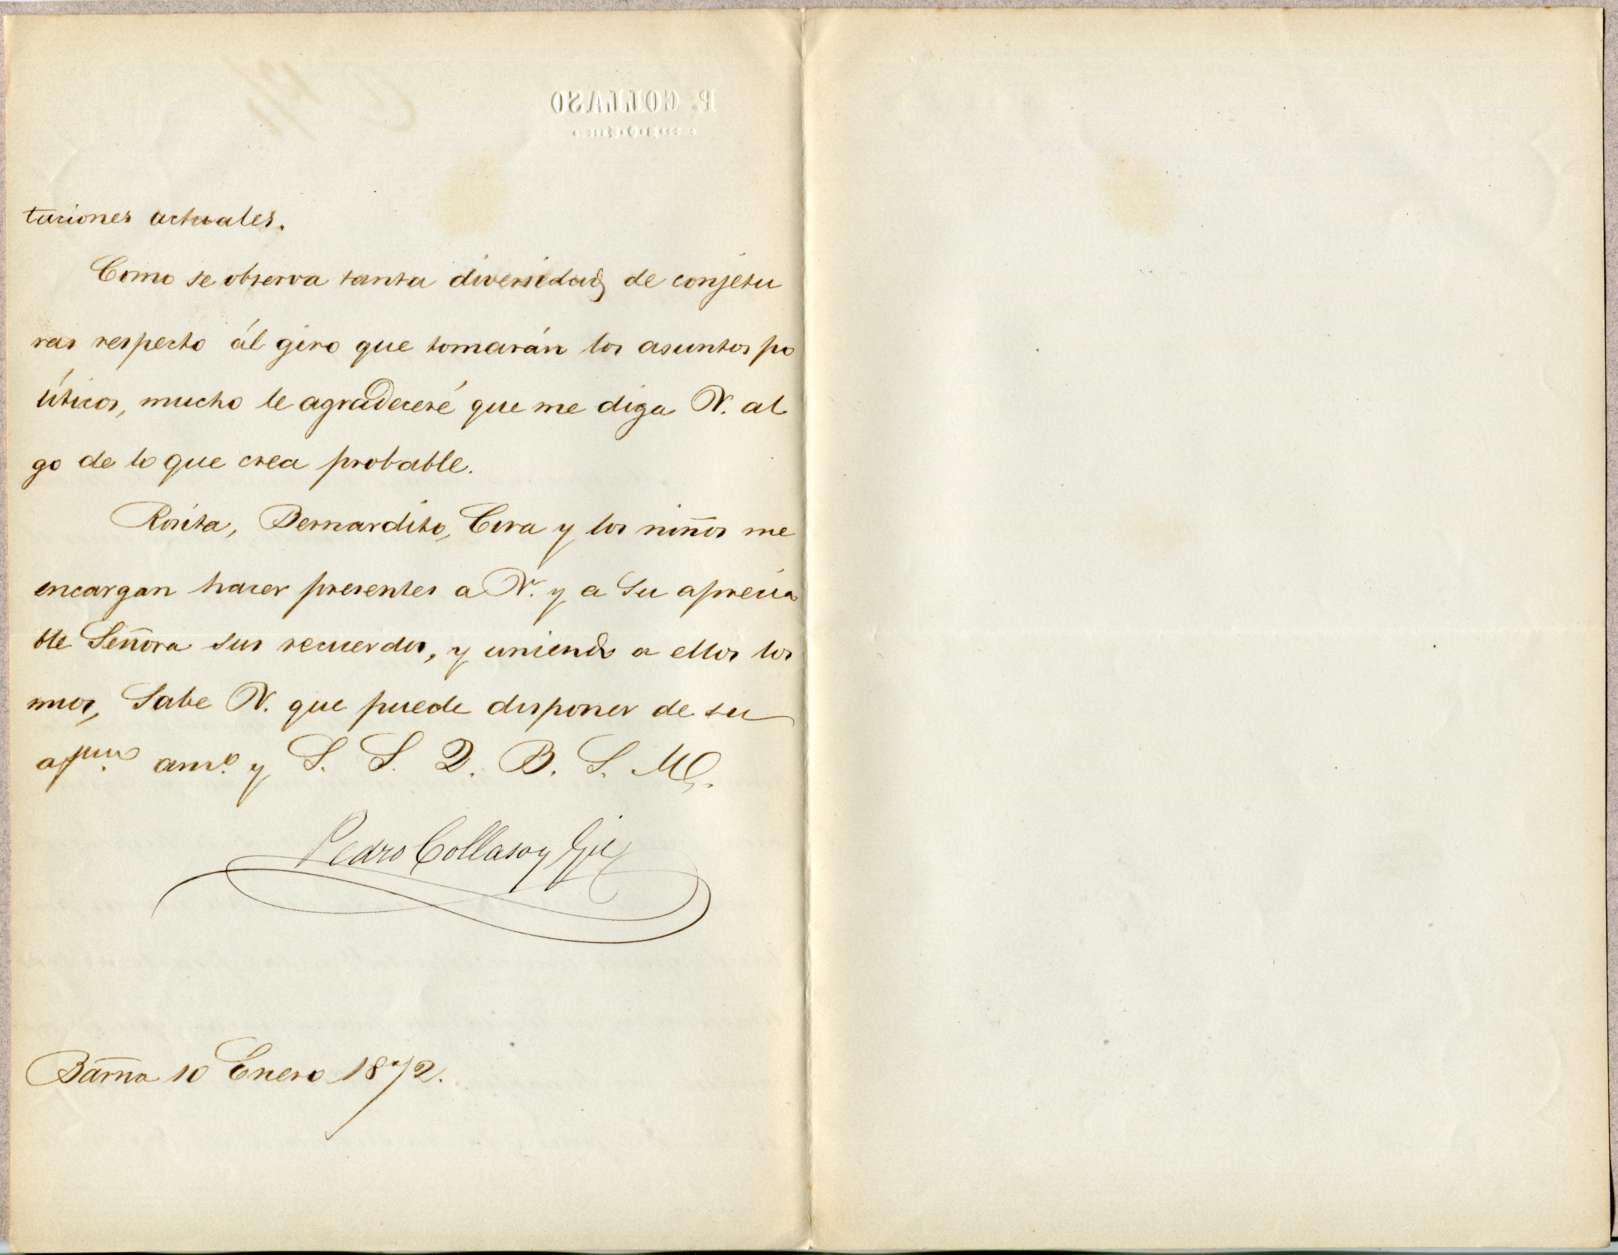 P. COLLASO
tuciones actuales.
Como se observa tanta diversidad de conjetu
ras respecto ál giro que tomarán los asuntos po
líticos, mucho le agradeceré que me diga V. al
go de lo que crea probable.
Rosita, Bernardito, Cora y los niños me
encargan hacer presentes a V. y a Su aprecia
ble Señora sus recuerdos, y uniendo a ellos los
mios, Sabe V. que puede disponer de su
afmo. amo. y S. S. Q. B. S. M.
Pedro Collaso y Gil
Barna 10 Enero 1872.